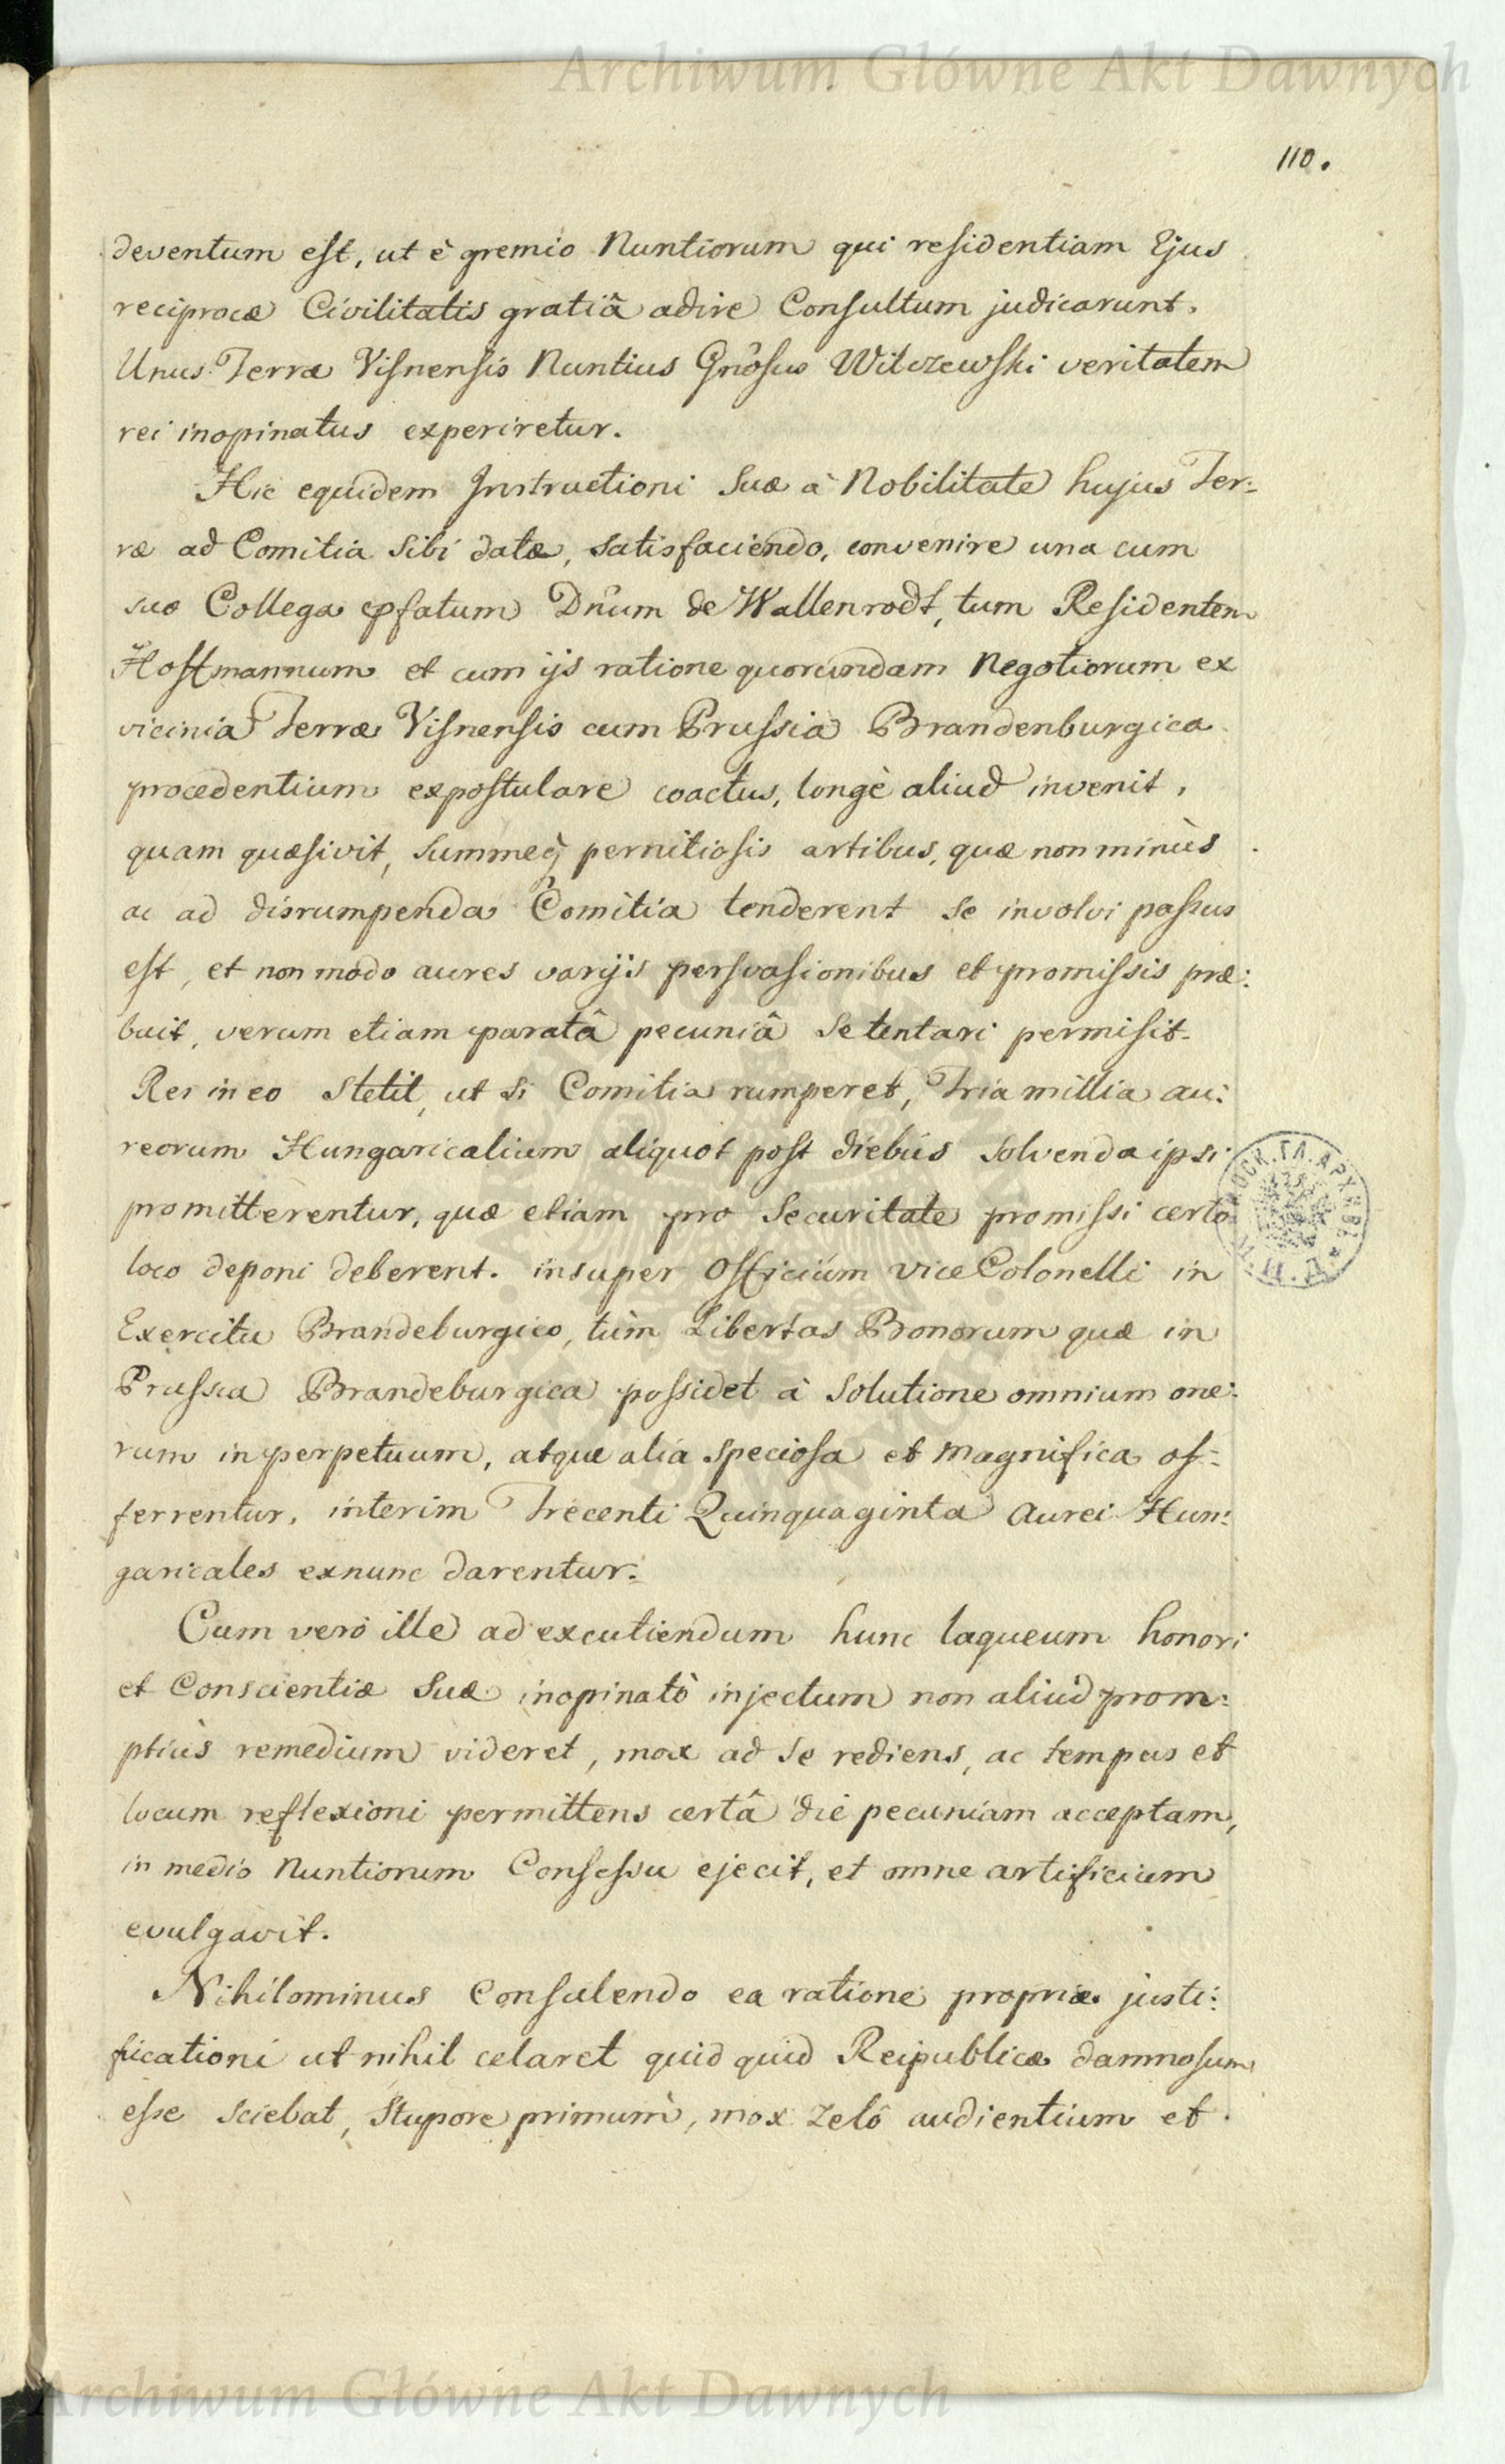 Archiwum Główne Akt Dawnych
110.
deventum est, ut è gremio Nuntiorum qui residentiam Ejus
reciprocæ Civilitatis gratiâ adire Consultum judicarunt.
Unus Terræ Visnensis Nuntius Gnosus Wilczewski veritatem
rei inopinatus experiretur.
Hic equidem Instructioni Suæ à Nobilitate hujus Ter:
ræ ad Comitia Sibi datæ, satisfaciendo, convenire una cum
suo Collega epfatum Dnum de Wallenrodt, tum Residentem
Hoffmannum et cum ijs ratione quorundam Negotiorum ex
vicinia Terræ Visnensis cum Prussia Brandenburgica
procedentium expostulare coactus, longè aliud invenit,
quam quæsivit, summeq pernitiosis artibus, quæ non minùs
ac ad disrumpenda Comitia tenderent se involvi passus
est, et non modo aures varijs persvasionibus et promissis præ:
buit, verum etiam paratâ pecuniâ se tentari permisit.
Res in eo stetit, ut si Comitia rumperet, Tria millia au:
reorum Hungaricalium aliquot post diebus solvenda ipsi
promitterentur, quæ etiam pro Securitate promissi certo
loco deponi deberent. insuper Officium vice Colonelli in
Exercitu Brandeburgico, tùm Libertas Bonorum quæ in
Prussia Brandeburgica possidet à Solutione omnium one:
rum in perpetuum, atque alia speciosa et magnifica of:
ferrentur, interim Trecenti Quinquaginta Aurei Hun:
garicales exnunc darentur.
Cum verò ille ad excutiendum hunc laqueum honori
et Conscientiæ Suæ inopinatò injectum non aliud prom:
ptiùs remedium videret, mox ad se rediens, ac tempus et
locum reflexioni permittens certâ die pecuniam acceptam,
in medio Nuntiorum Consessu ejecit, et omne artificium
evulgavit.
Nihilominus Consulendo ea ratione propriæ justi:
ficationi ut nihil celaret quid quid Reipublicæ damnosum
esse sciebat, stupore primum, mox zelô audientium et
Archiwum Główne Akt Dawnych